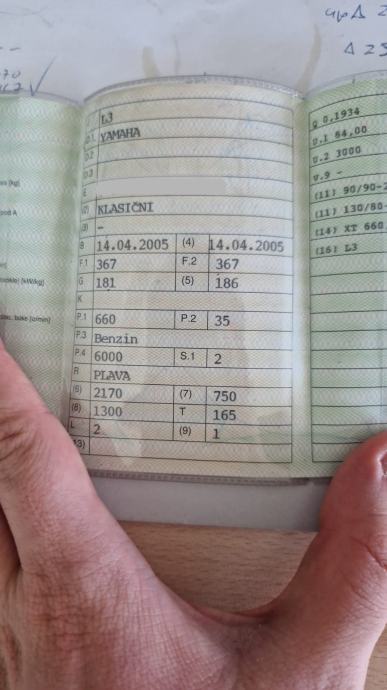 upΔ 2
Δ 25
L3
D.1 YAMAHA
D.2
D.3
E
(2) KLASIČNI
(3) -
B 14.04.2005 (4) 14.04.2005
F.1 367 F.2 367
G 181 (5) 186
K
P.1 660 P.2 35
P.3 Benzin
P.4 6000 S.1 2
R PLAVA
(6) 2170 (7) 750
(8) 1300 T 165
L 2 (9) 1
(13)
Q 0.1934
U.1 84,00
U.2 3000
V.9 -
(11) 90/90-2
(11) 130/80-
(14) XT 660
(16) L3